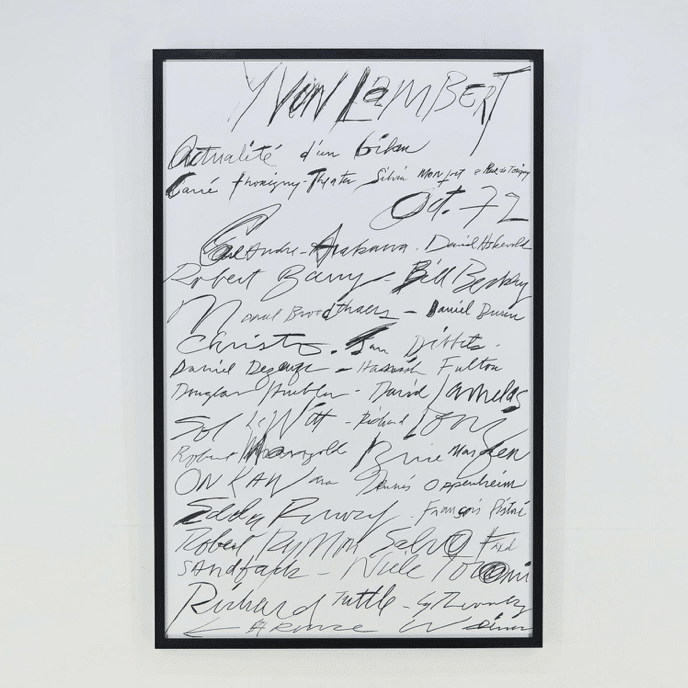 YVON LAMBERT
Actualité d'un bilan
Carré Thorigny - Theater Silvia Monfort Rue de Thorigny
Oct. 72
Carl Andre - Arakawa. David Askevold
Robert Barry - Bill Beckley
Marcel Broodthaers - Daniel Buren
Christo. Jan Dibbets.
Daniel Dezeuze - Hamish Fulton
Douglas Huebler - David Lamelas
Sol LeWitt - Richard Long
Robert Mangold Brice Marden
ON KAWara Dennis Oppenheim
Edda Renouf. François Ristori
Robert Ryman Salvo Fred
SANDback - Niele Toroni
Richard Tuttle - Cy Twombly
Lawrence Weiner